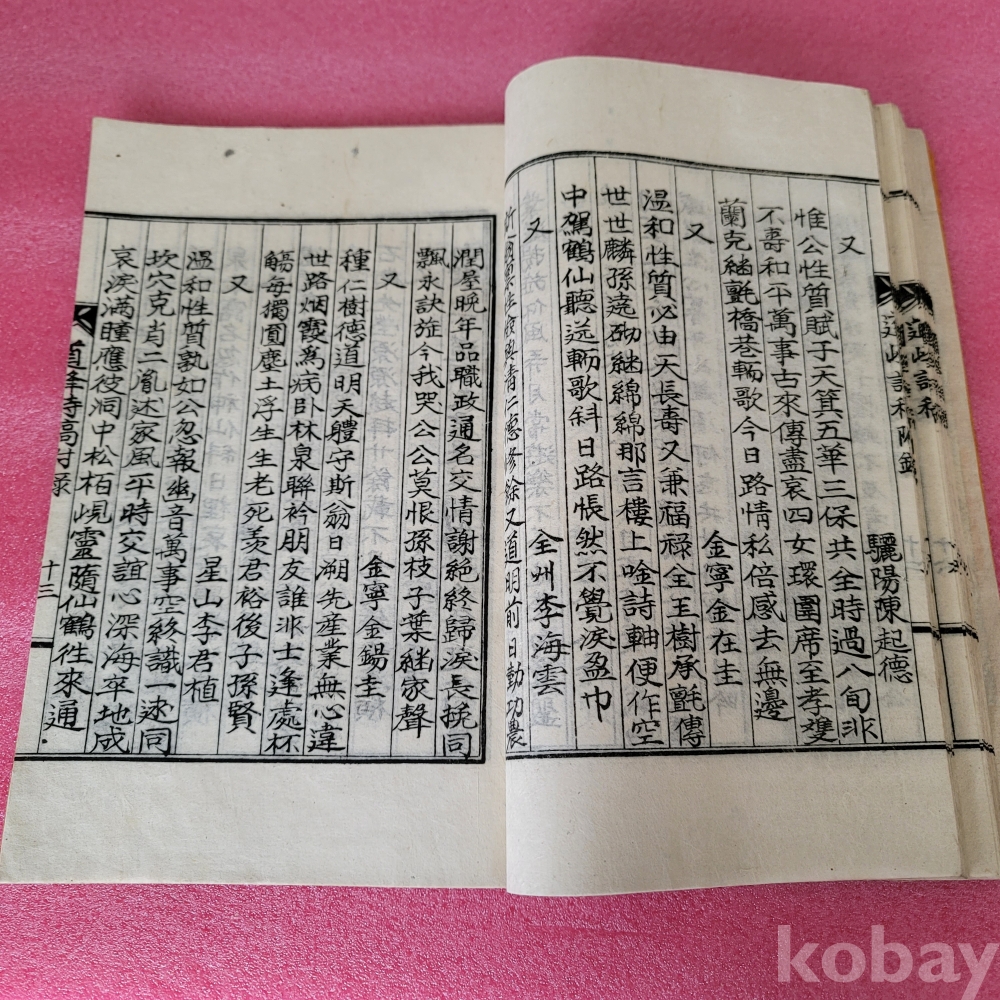 又
驪陽陳起德
惟公性質賦于天箕五華三保共全時過八旬非
不壽和平萬事古來傳盡哀四女環圍席至孝雙
蘭克継氈橋巷輀歌今日路情私倍感去無邊
又
金寧金在圭
溫和性質必由天長壽又兼福祿全玉樹承氈傳
世世麟孫遶砌継綿綿那言樓上唫詩軸便作空
中駕鶴仙聽送輀歌斜日路悵然不覺淚盈巾
又
全州李海雲
仁德修餘又道明前日勤功農
潤屋晚年品職政通名交情謝絶終歸淚長挽同
飄永訣旌今我哭公公莫恨孫枝子葉継家聲
又
金寧金鍚圭
種仁樹德道明天體守斯翁日溯先産業無心違
世路烟霞爲病卧林泉聯衿朋友誰非士逢處杯
觴每獨圓塵土浮生生老死羨君裕後子孫賢
又
星山李君植
溫和性質孰如公忽報幽音萬事空終識一逑同
坎穴克肖二胤述家風平時交誼心深海卒地成
哀淚滿瞳應彼洞中松栢峴靈隨仙鶴往來通
十三
kobay